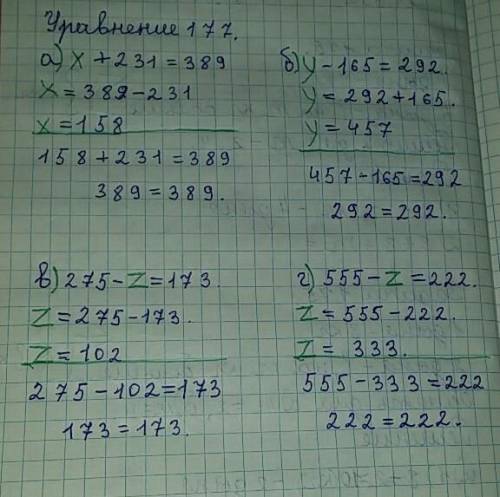 Уравнение 177.
а) x + 231 = 389
x = 389 - 231
x = 158
158 + 231 = 389
389 = 389.
б) y - 165 = 292.
y = 292 + 165.
y = 457
457 - 165 = 292
292 = 292.
в) 275 - z = 173.
z = 275 - 173.
z = 102
275 - 102 = 173
173 = 173.
г) 555 - z = 222.
z = 555 - 222.
z = 333.
555 - 333 = 222
222 = 222.